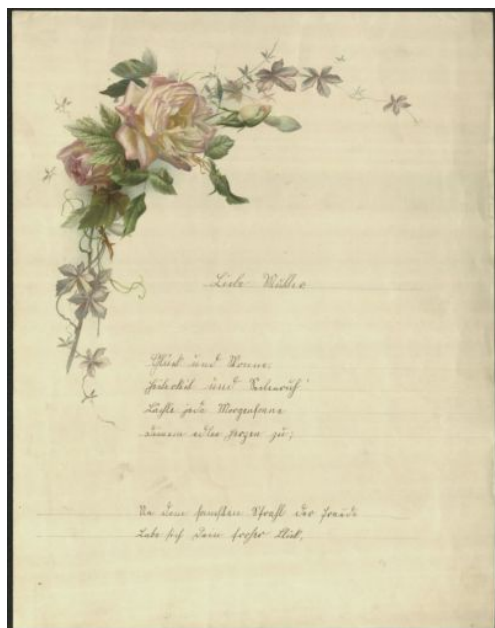 Liebe Mutter
Glück und Wonne,
Heiterkeit und Seelenruh'
Lächle jede Morgensonne
Deinem edlen Herzen zu;
An dem sanften Strahl der Freude
Labe sich Dein froher Blick,